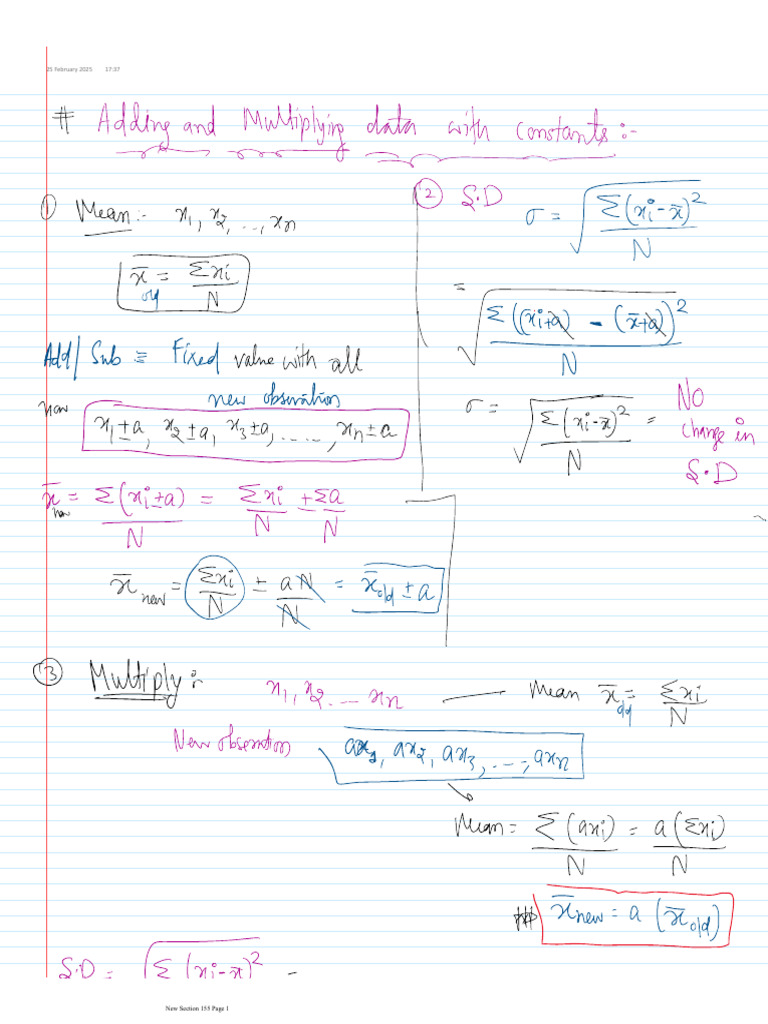 25 February 2025 17:37
# Adding and Multiplying data with constants:-
① Mean:- x₁, x₂, ..., xₙ
x̄ old = Σxi / N
Add/Sub ≡ Fixed value with all
new observation
now x₁±a, x₂±a, x₃±a, ......, xₙ±a
x̄ new = Σ(xi±a) / N = Σxi / N ± Σa / N
x̄ new = Σxi / N ± aN / N = x̄ old ± a
② S.D σ = √(Σ(xi-x̄)² / N)
= √(Σ((xi+a) - (x̄+a))² / N)
σ = √(Σ(xi-x̄)² / N) = NO
change in
S.D
③ Multiply:- x₁, x₂ ... xₙ — Mean x̄ old = Σxi / N
New observation ax₁, ax₂, ax₃, ..., axₙ
Mean = Σ(axi) / N = a(Σxi) / N
x̄ new = a (x̄ old)
S.D = √Σ(xi-x̄)² =
New Section 155 Page 1